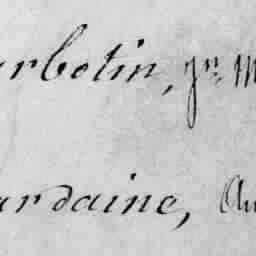 arbotin, jn. M
ardaine, Au